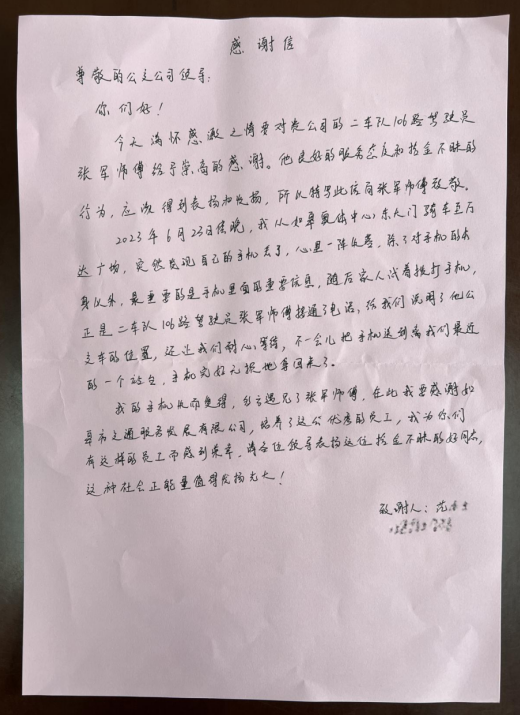 感谢信
尊敬的公交公司领导:
你们好!
今天满怀感激之情要对贵公司的二车队106路驾驶员
张军师傅给予崇高的感谢。他良好的服务态度和拾金不昧的
行为,应该得到表扬和发扬,所以特写此信向张军师傅致敬。
2023年6月23日傍晚,我从如皋奥体中心东大门骑车至万
达广场,突然发现自己的手机丢了,心里一阵失落,除了对手机的本
身以外,最重要的是手机里面的重要信息,随后家人试着拨打手机,
正是二车队106路驾驶员张军师傅接通了电话,给我们说明了他公
交车的位置,还让我们耐心等待,不一会儿把手机送到离我们最近
的一个站台,手机完好无损地拿回来了。
我的手机失而复得,幸亏遇见了张军师傅,在此我要感谢如
皋市交通服务发展有限公司,培养了这么优秀的员工,我为你们
有这样的员工而感到荣幸。请各位领导表扬这位拾金不昧的好同志,
这种社会正能量值得发扬光大!
致谢人:范